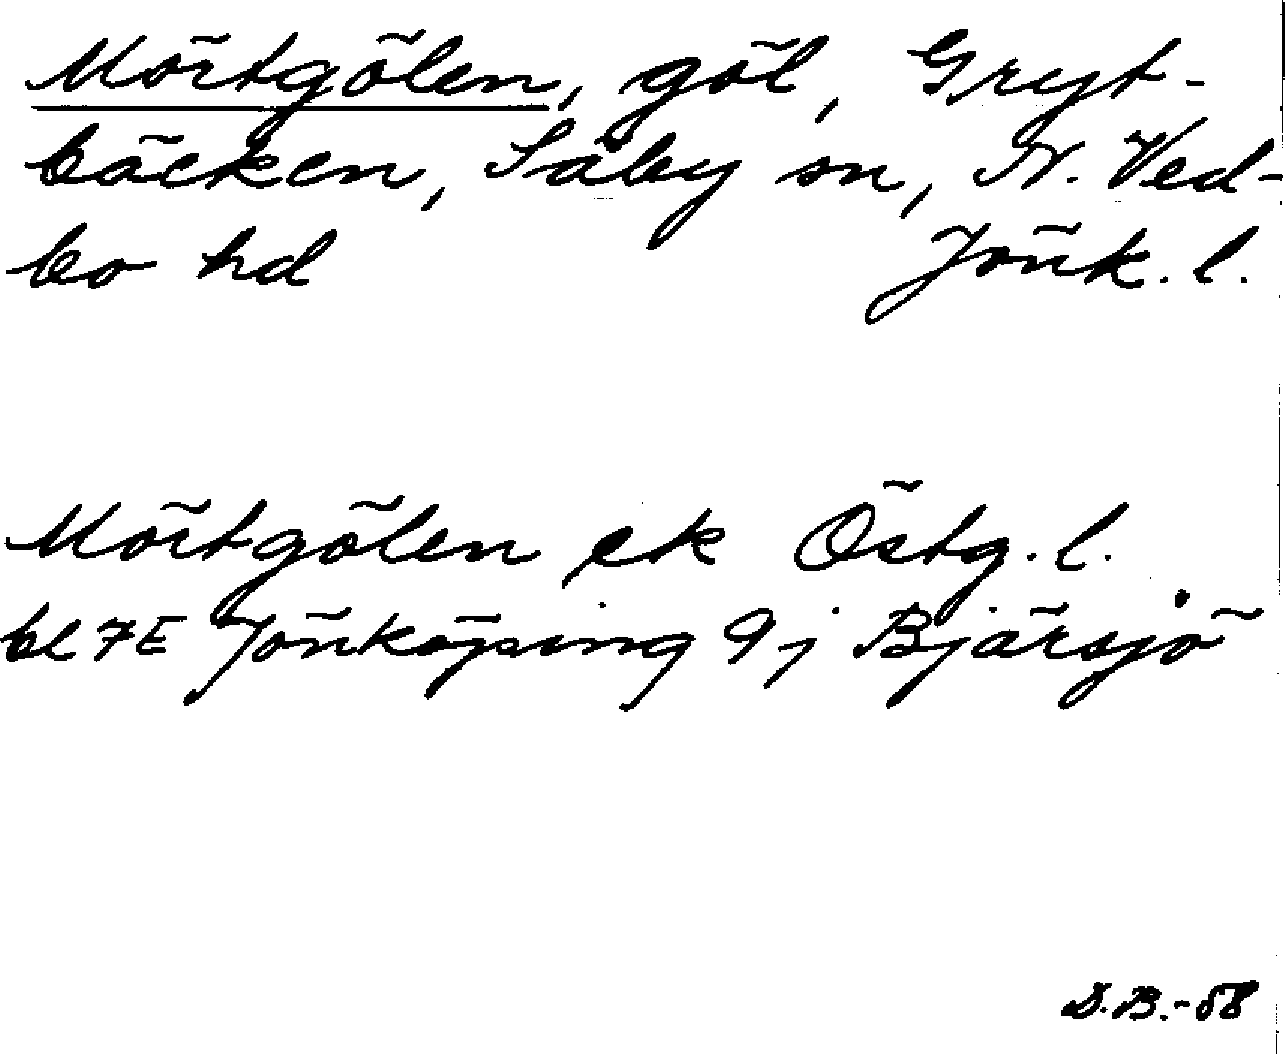 Mörtgölen, göl, Gryt-
bäcken, Säby sn, N. Ved-
bo hd Jönk. l.
Mörtgölen ek Östg. l.
bl 7E Jönköping 9j Bjärsjö
D.B.-58